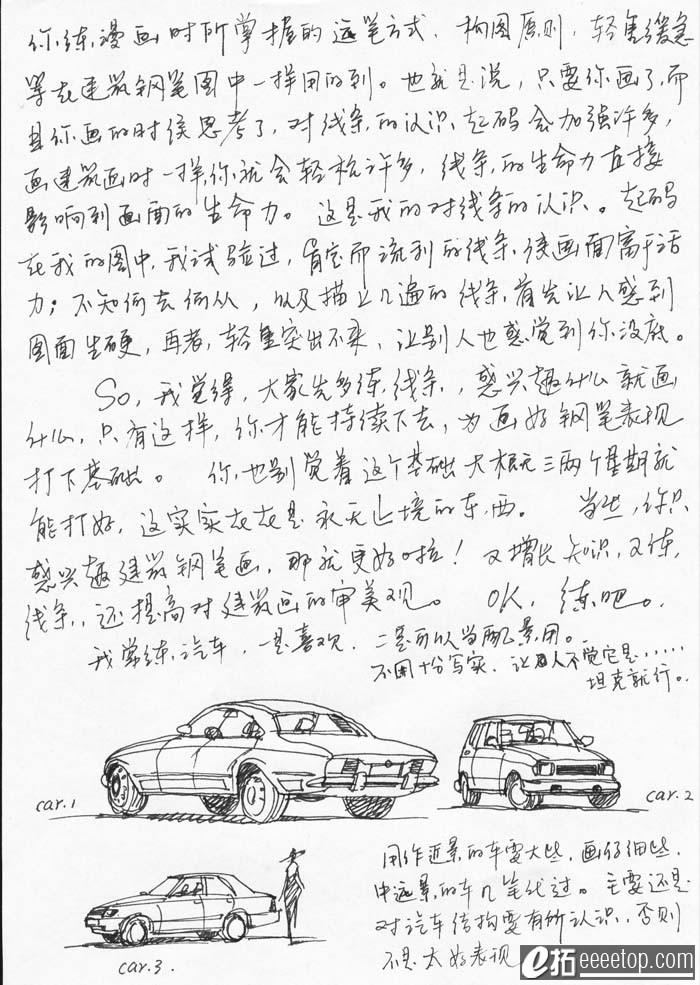 你练漫画时所掌握的运笔方式、构图原则,轻重缓急
等在建筑钢笔图中一样用的到。也就是说,只要你画了,而
且你画的时侯思考了,对线条的认识起码会加强许多,
画建筑画时一样,你就会轻松许多,线条的生命力直接
影响到画面的生命力。这是我的对线条的认识。起码
在我的图中,我试验过,肯定而流利的线条使画面富于活
力;不知何去何从,以及描上几遍的线条,首先让人感到
图面生硬,再者,轻重突出不来,让别人也感觉到你没底。
So,我觉得,大家先多练线条,感兴趣什么就画
什么,只有这样,你才能持续下去,为画好钢笔表现
打下基础。你也别觉着这个基础大概三两个星期就
能打好,这实实在在是永无止境的东西。当然,你只
感兴趣建筑钢笔画,那就更好啦!又增长知识,又练
线条,还提高对建筑画的审美观。OK,练吧。
我常练汽车,一是喜欢,二是可以当配景用。
不用十分写实,让人不觉它是......
坦克就行。
car.1
car.2
用作近景的车要大些,画仔细些,
中远景的车几笔代过。主要还是
对汽车结构要有所认识,否则
不是太好表现
car.3.
e拓 eeeetop.com